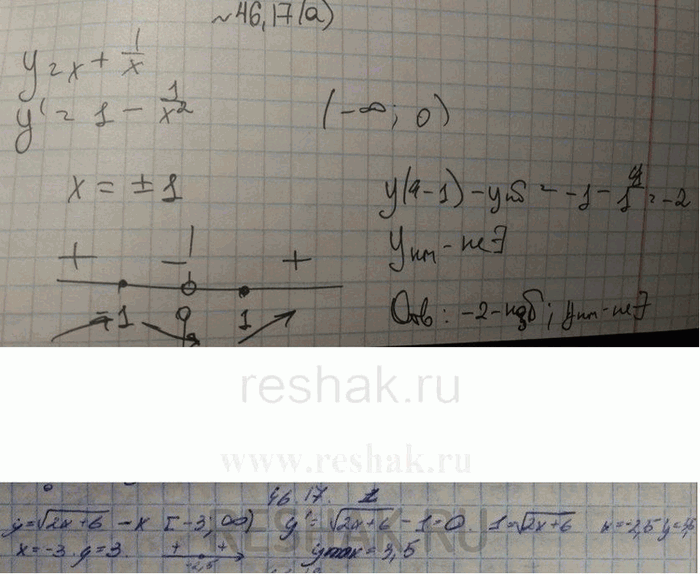 ~46,17(а)
y = x + 1/x
y' = 1 - 1/x²
(-∞; 0)
x = ±1
y(-1) - yнб = -1 - 1 = -2
yнм - не ∃
+ - +
-1 0 1
Отв: -2 - нб; yнм - не ∃
reshak.ru
www.reshak.ru
46.17. 2
y = √2x+6 - x [-3, ∞) y' = √2x+6 - 1 = 0 1 = √2x+6 x = -2,5 y = 3,5
x = -3. y = 3. + + -2,5 ymax = 3,5
RESHAK.RU